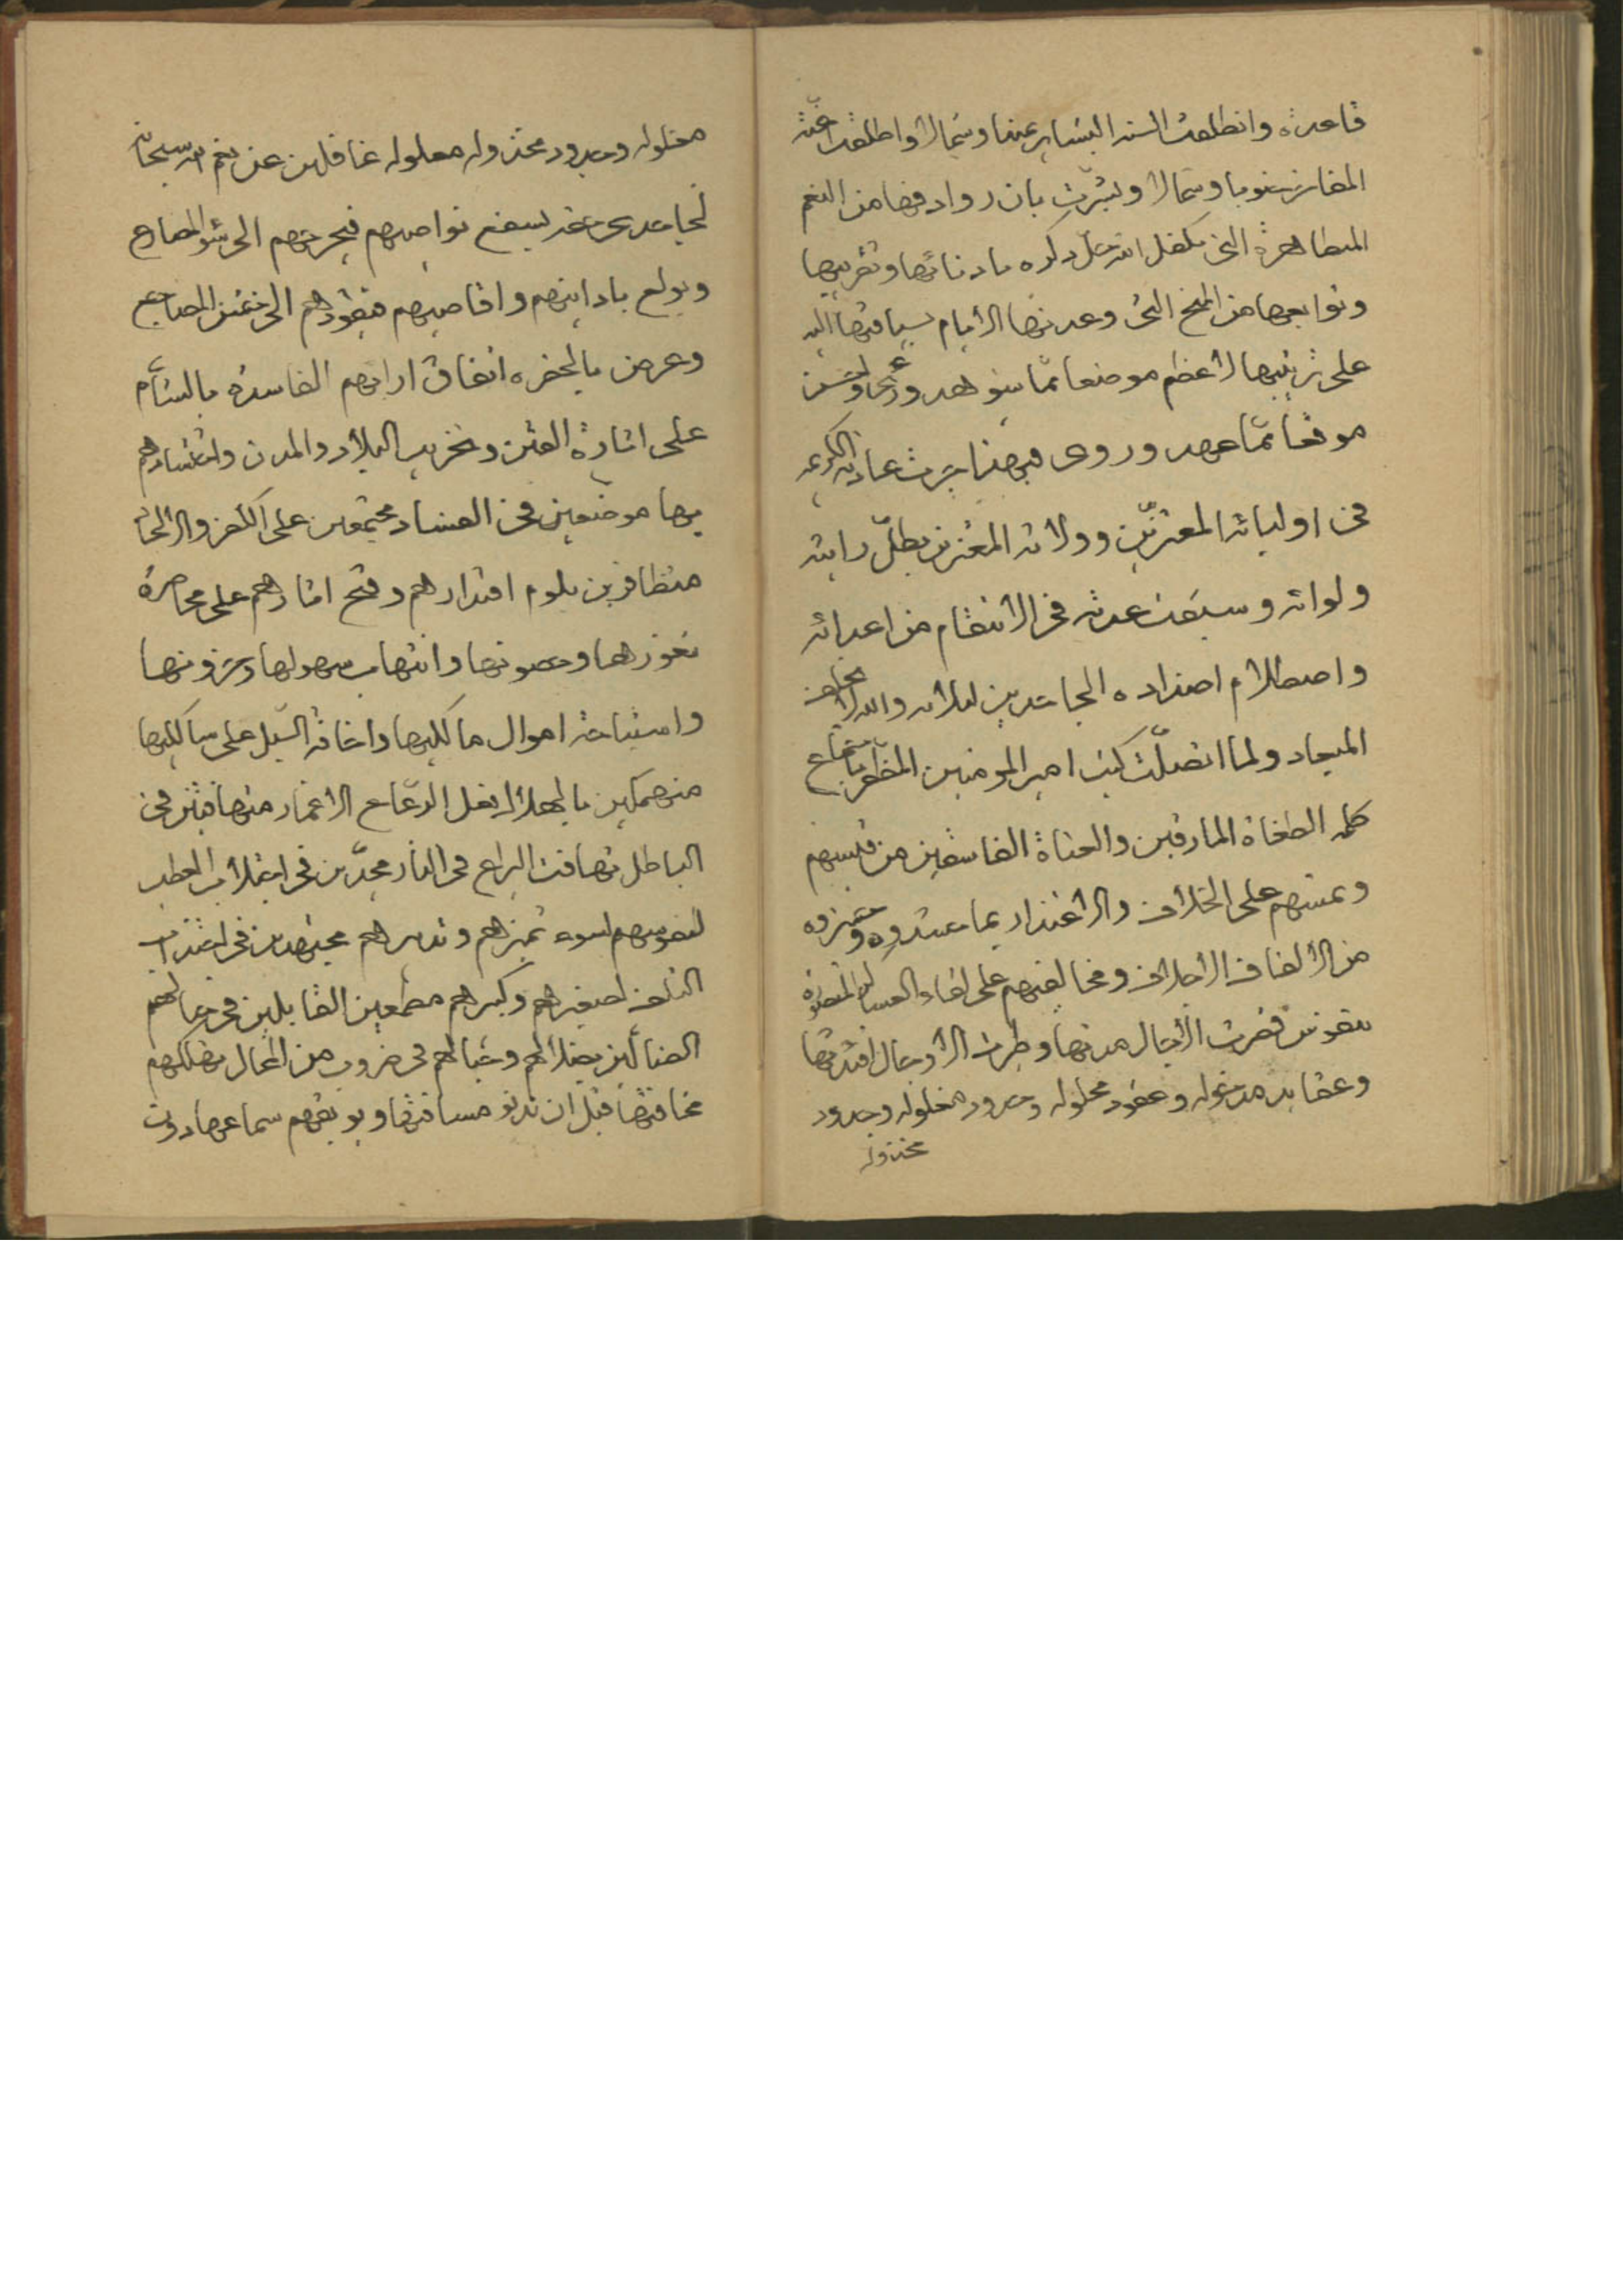 قاعدته وانطلقت السنة البشاير يمينا وشمالا واطلقت اعنة
المفاخر جنوبا وشمالا وبشرت بان روادفها من النعم
المتظاهرة التى تكفل الله جل ذكره بادنائها وتقريبها
وتوابعها من المنح التى وعدتها الايام بسياقتها اليه
على ترتيبها لاعظم موضعا مما شوهد ورئى واحسن
موقعا مما عهد وروى فبهذا جرت عادته الكريمة
فى اوليائه المعتزين وولاته المغترين بظل رايته
ولوائه وسبقت عدته فى الانتقام من اعدائه
واصطلام اضداده الجاحدين لالائه والله لا يخلف
الميعاد ولما اتصلت كتب امير المومنين المظفر باجتماع
كلمة الطغاة المارقين والعتاة الفاسقين من قيسهم
ويمنهم على الخلاف والاغترار بما حشدوه وحزوه
من الالفاف الاحلاف ومخالفتهم على لقاء العساكر المنصورة
بنفوس قصرت الآجال مدتها وطيرت الاوجال افئدتها
وعقايد مدخولة وعقود محلولة وحدود مفلولة وجدود
مخذولة
مفلولة وجدود مخذولة معلولة غافلين عن نعم الله سبحانه
لجاحد يسفع نواصيهم فيجرهم الى شر المصارع
ويولع بادانيهم واقاصيهم فيقودهم الى اخشن المضاجع
وعرض بالحضرة اتفاق ارائهم الفاسدة بالشأم
على اثارة الفتن وتخريب البلاد والمدن وانتشارهم
بها موضعين فى الفساد مجتمعين على الكفر والالحاد
متظافرين بلوم اقتدارهم وقبح اثارهم على محاصرة
ثغورها وحصونها وانتهاب سهولها وحزونها
واستباحة اموال مالكيها واخافة السبل على سالكيها
منهمكين بالجهالة فعل الرعاع الاغمار متهافتين فى
الباطل تهافت اليراع فى النار مجدين فى اجتلاب العطب
لنفوسهم لسوء تميزهم وتدبيرهم مجتهدين فى اجتذاب
التلف لصغيرهم وكبيرهم مطمعين القابلين فى محالهم
الضالين بضلالهم وخبالهم فى ضروب من المحال تهلكهم
مخافتها قبل ان تدنو مسافتها ويوبقهم سماعها دون